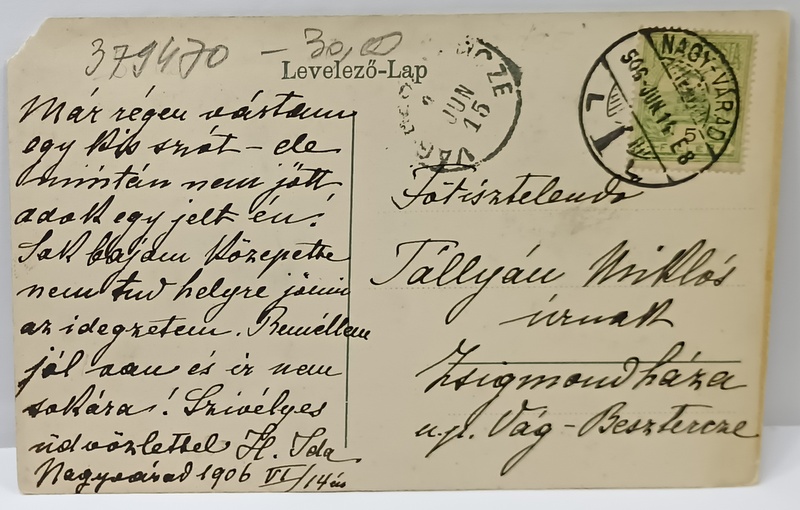 379470 - 30,00
Levelező-Lap
Már régen vártam
egy kis szót - de
miután nem jött
adok egy jelt én!
Sok bajom közepette
nem tud helyre jönni
az idegzetem. Remélem
jól van és ír nem
sokára! Szivélyes
üdvözlettel H. Ida
Nagyvárad 1906 VI/14én
CZE
JUN
15
VÁG
NAGYVÁRAD
906 JUN. 14. E8
L
5
Főtisztelendő
Tállyán Miklós
úrnak
Zsigmondháza
u.p. Vág-Besztercze